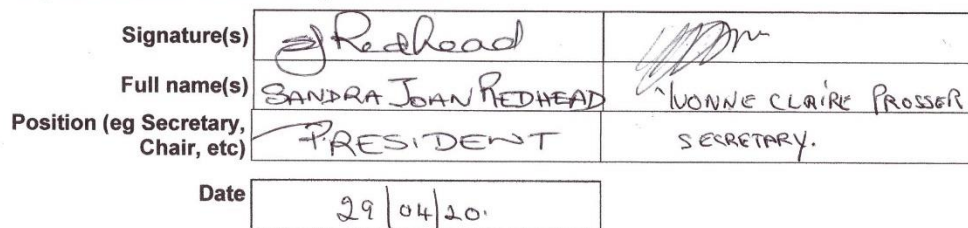 Signature(s) SJ Redhead
Full name(s) SANDRA JOAN REDHEAD YVONNE CLAIRE PROSSER
Position (eg Secretary, PRESIDENT SECRETARY.
Chair, etc)
Date 29/04/20.